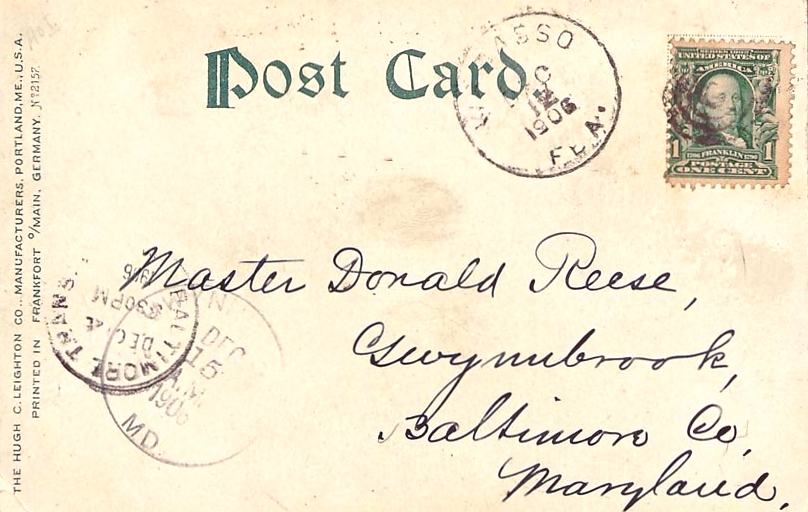 Post Card
ASSO
1906
FLA.
UNITED STATES OF
AMERICA
1 FRANKLIN 1
POSTAGE
ONE CENT
Master Donald Reese,
Gwynnbrook,
Baltimore Co,
Maryland,
BALTIMORE TRANS
DEC 4
330PM
DEC
15
A.M.
1906
MD.
THE HUGH C. LEIGHTON CO., MANUFACTURERS, PORTLAND, ME., U.S.A.
PRINTED IN FRANKFORT o/MAIN, GERMANY. No 2157.